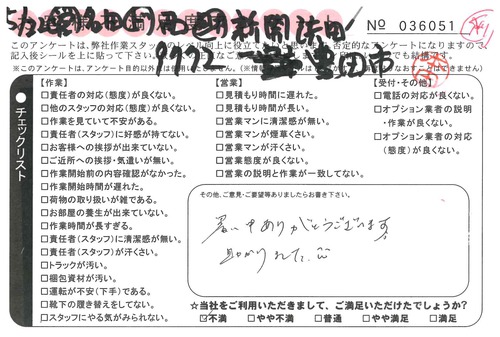 № 036051
このアンケートは、弊社作業スタッフのレベル向上に役立てたいと思います。否定的なアンケートになりますので、
チェックリスト
【作業】
□責任者の対応(態度)が良くない。
□他のスタッフの対応(態度)が良くない。
□作業を見ていて不安がある。
□責任者(スタッフ)に好感が持てない。
□お客様への挨拶が出来ていない。
□ご近所への挨拶・気遣いが無い。
□作業開始前の内容確認がなかった。
□作業開始時間が遅れた。
□荷物の取り扱いが雑である。
□お部屋の養生が出来ていない。
□作業時間が長すぎる。
□責任者(スタッフ)に清潔感が無い。
□責任者(スタッフ)が汗くさい。
□トラックが汚い。
□梱包資材が汚い。
□運転が不安(下手)である。
□靴下の履き替えをしてない。
□スタッフにやる気がみられない。
【営業】
□見積もり時間に遅れた。
□見積もり時間が長い。
□営業マンに清潔感が無い。
□営業マンが煙草くさい。
□営業マンが汗くさい。
□営業態度が良くない。
□営業の説明と作業が一致してない。
【受付・その他】
□電話の対応が良くない。
□オプション業者の説明
・作業が良くない。
□オプション業者の対応
(態度)が良くない。
その他、ご意見・ご要望等ありましたらお書き下さい。
暑い中ありがとうございます
助かりました
☆当社をご利用いただきまして、ご満足いただけたでしょうか?
□不満 □やや不満 □普通 □やや満足 □満足